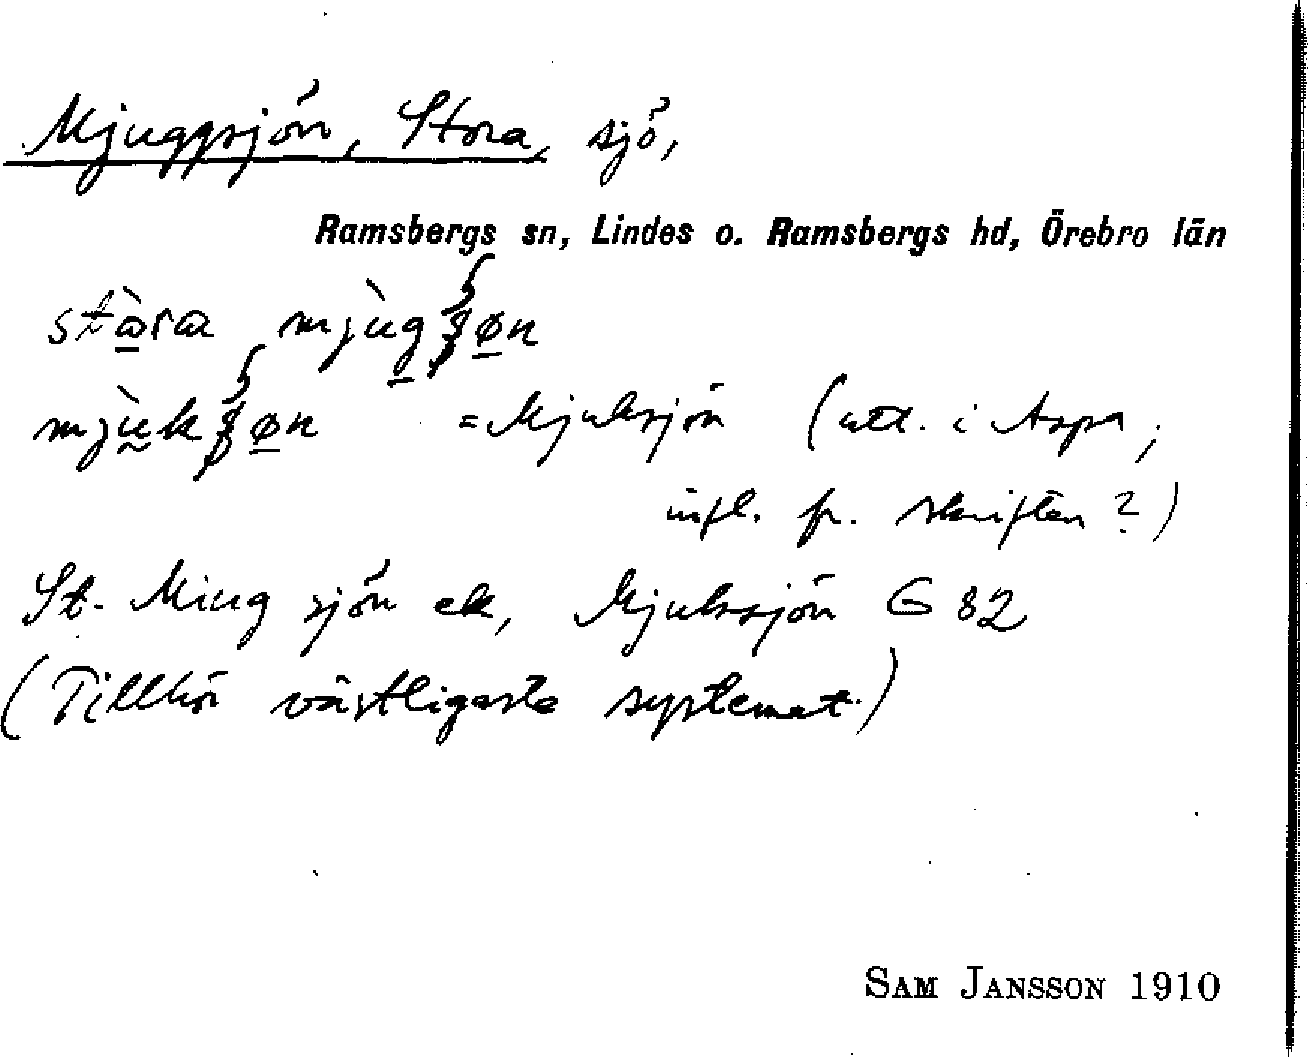 Mjuggsjön, Stora, sjö,
Ramsbergs sn, Lindes o. Ramsbergs hd, Örebro län
stɷ̀ra mjùgʂøn
mjùkʂøn = Mjuksjön (utt. i Aspa;
infl. fr. skriften?)
St. Miugsjön ek, Mjukssjön G 82
(Tillhör västligaste systemet.)
SAM JANSSON 1910